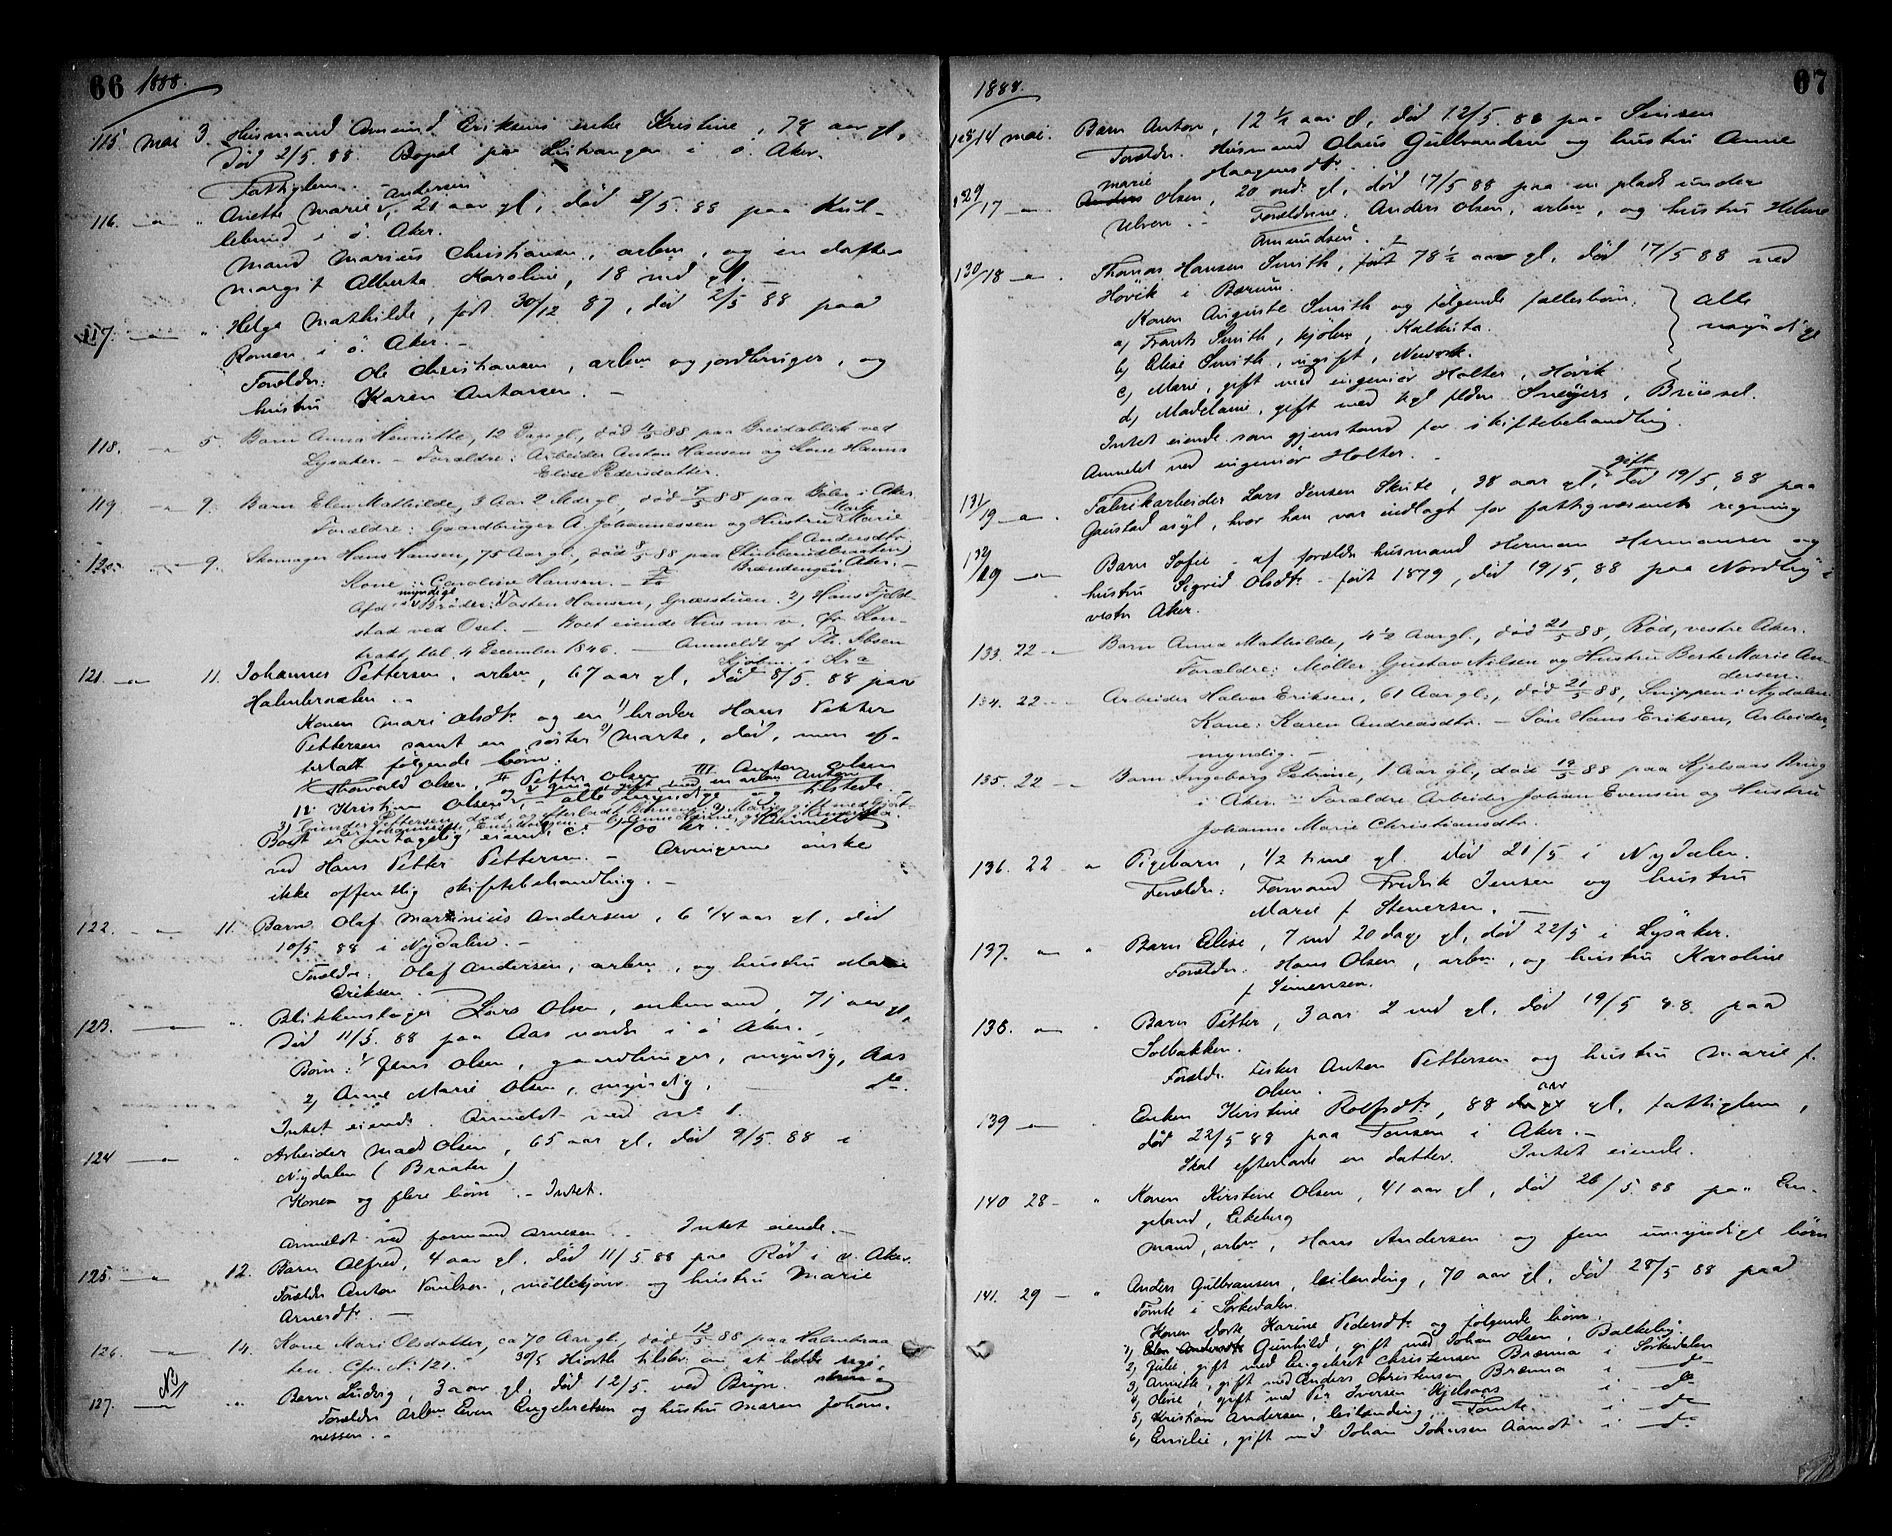 66 1888.
115 Mai 3. Husmand Amund Eriksens enke Kristine, 78 aar gl,
død 2/5. 88. Bopæl paa i ö. Aker.
Fattiglem.
116. " Anette Marie Andersen, 21 aar gl, død 2/5. 88 paa Kul-
lebund i ö. Aker.
Mand Marius Christiansen, arbm, og en datter
Margit Alberta Karoline, 18 md gl.
117. " Helga Mathilde, født 30/12 87, død 2/5 88 paa
Romen i ö. Aker.
Forældre: Ole Christiansen, arbm og jordbruger, og
hustru Karen Antonsen.
118. 5. Barn Anna Henriette, 12 Dage gl, død 4/5 88 paa Breidablik ved
Lysaker. – Forældre: Arbeider Anton Hansen og Kone Hanna
Elise Pedersdatter.
119 9. Barn Elen Mathilde, 3 Aar 2 Mdr gl, død 7/5 88 paa Bøler i Aker.
Forældre: Gaardbruger A. Johannessen og Hustru Marthe Marie
f. Andersdtr.
120 9. Skomager Hans Hansen, 75 Aar gl, død 8/5 88 paa Stubberudbraaten,
Brændengen i Aker. –
Kone: Caroline Hansen. –
Afd: s myndige Brødre: 1) Tosten Hansen, Græsstuen. 2) Hans Fjeld-
stad ved Oset. – Boet eiende Hus m. v. for Kon-
trakt, thl. 4 December 1846. – Anmeldt af Th. Ibsen
i Kra
121 11. Johannes Pettersen, arbm, 67 aar gl, død 8/5. 88 paa
Halmbraaten.
Konen Mari Olsdtr og en 1) broder Hans Petter
Pettersen samt en søster 2) Marte, død, men ef-
terladt følgende børn:
I Thorvald Olsen, II Petter Olsen III Anton Olsen
IV Kristian Olsen, og V gift med en arbm Anton
– alle myndige og tilstede.
3) Gunder Pettersen, død, og efterladt Børnene: a) Marie, gift med
Johannes b) Anne Karine, gift i Amerika.
Boet er antagelig eiende ca. 400 kr. Anmeldt
ved Hans Petter Pettersen. – Arvingerne ønske
ikke offentlig skiftebehandling. –
122. 11. Barn Olaf Martinius Andersen, 6 1/4 aar gl, død
10/5 88 i Nydalen. –
Forældre: Olaf Andersen, arbm, og hustru Marie
Eriksen.
123. " Blikkenslager Lars Olsen, enkemand, 71 aar gl,
død 11/5. 88 paa Aas nordre i ö Aker.
Børn: 1) Jens Olsen, gaardbruger, myndig, Aas
2) Anne Marie Olsen, myndig, do.
Intet eiende. Anmeldt ved No 1.
124 " Arbeider Mads Olsen, 65 aar gl, død 9/5. 88 i
Nydalen (Braaten)
Konen og flere børn. – Intet.
Anmeldt ved formand Arnesen. Intet eiende. –
125. 12. Barn Alfred, 4 aar gl. død 11/5. 88 paa Rød i v. Aker.
Forældre Anton Poulsen, møllekjører og hustru Marie
Arnesdtr. –
126. 14. Kone Mari Olsdatter, ca 70 Aar gl, død 12/5 88 paa Halmbraa-
ten. Cfr. No 121. 30/5 Hiorth tilskr. om at holde regi-
strering
127. NB " Barn Ludvig, 3 aar gl, død 12/5. ved Bryn.
Forældre Arbm Even Engebretsen og hustru Maren Johan-
nessen.
1888. 67
128/14 Mai. Barn Anton, 12 1/2 aar, død 12/5. 88 paa Sinsen
Forældre. Husmand Olaus Gulbrandsen og hustru Anne
Marie Haagensdtr.
129/17 Anders Olsen, 20 md. gl, død 17/5 88 paa en plads under
Ulven. – Forældrene: Anders Olsen, arbm, og hustru Helene
Amundsen.
130/18 Thomas Hansen Smith, født 78 1/2 aar gl, død 17/5 88 ved
Høvik i Bærum.
Konen Auguste Smith og følgende fællesbørn:
a) Frants Smith, kjøbm, Kalkutta.
b) Elise Smith, ugift, Newyork.
c) Marie, gift med ingeniør Holter, Høvik
d) Madelaine, gift med Sneyers, Brüssel.
alle myndige
Intet eiende som gjenstand for skiftebehandling.
Anmeldt ved ingeniør Holter.
131/19 Fabrikarbeider Lars Jensen Skute, 38 aar gl, gift død 19/5. 88 paa
Gaustad asyl, hvor han var indlagt for fattigvæsenets regning
132/19 Barn Sofie – af forældre husmand Herman Hermansen og
hustru Sigrid Olsdtr – født 1879, død 19/5. 88 paa Nordby i
vestre Aker.
133. 22 Barn Anna Mathilde, 4 1/2 Aar gl, død 21/5 88, Rød, vestre Aker.
Forældre: Møller Gustav Nilsen og Hustru Berte Marie An-
dersen.
134. 22 Arbeider Halvor Eriksen, 61 Aar gl, død 21/5 88, Snippen i Nydalen.
Kone: Karen Andreasdtr. – Søn Hans Eriksen, Arbeider,
myndig. –
135. 22 Barn Ingeborg Petrine, 1 Aar gl, død 19/5 88 paa Kjelsaas Brug
i Aker. – Forældre Arbeider Johan Evensen og Hustru
Johanne Marie Christiansdtr.
136. 22 Pigebarn, 1/2 time gl. død 21/5 i Nydalen.
Forældre: Formand Fredrik Jensen og hustru
Marie f. Stenersen.
137. " Barn Elise, 7 md 20 dage gl, død 22/5 i Lysaker.
Forældre. Hans Olsen, arbm, og hustru Karoline
f. Simensen.
138. " Barn Petter, 3 aar 2 md gl, død 19/5 88 paa
Solbakken.
Forældre Anton Pettersen og hustru Marie f.
Olsen.
139 " Enken Kirstine Rolfsdtr, 88 aar gl, fattiglem,
død 22/5 88 paa Tonsen i Aker. –
Skal efterlade en datter. Intet eiende.
140 28 " Konen Kirstine Olsen, 41 aar gl, død 26/5. 88 paa En-
geland, Ekeberg
Mand, arbm, Hans Andersen og fem umyndige børn
141. 29 " Anders Gulbransen, leilending, 70 aar gl, død 28/5 88 paa
Tømte i Sørkedalen.
Konen Dorte Karine Pedersdtr og følgende børn:
1) Gunhild, gift med Johan Olsen, Balkeby
2) Julie, gift med Engebret Christensen Brænna i Sørkedalen
3) Annette, gift med Anders Christensen Brænna i do
4) Oline, gift med Per Iversen Kjelsaas i do
5) Kristian Andersen, leilending, Tømte i do
6) Emilie, gift med Johan Johansen Aamodt i do